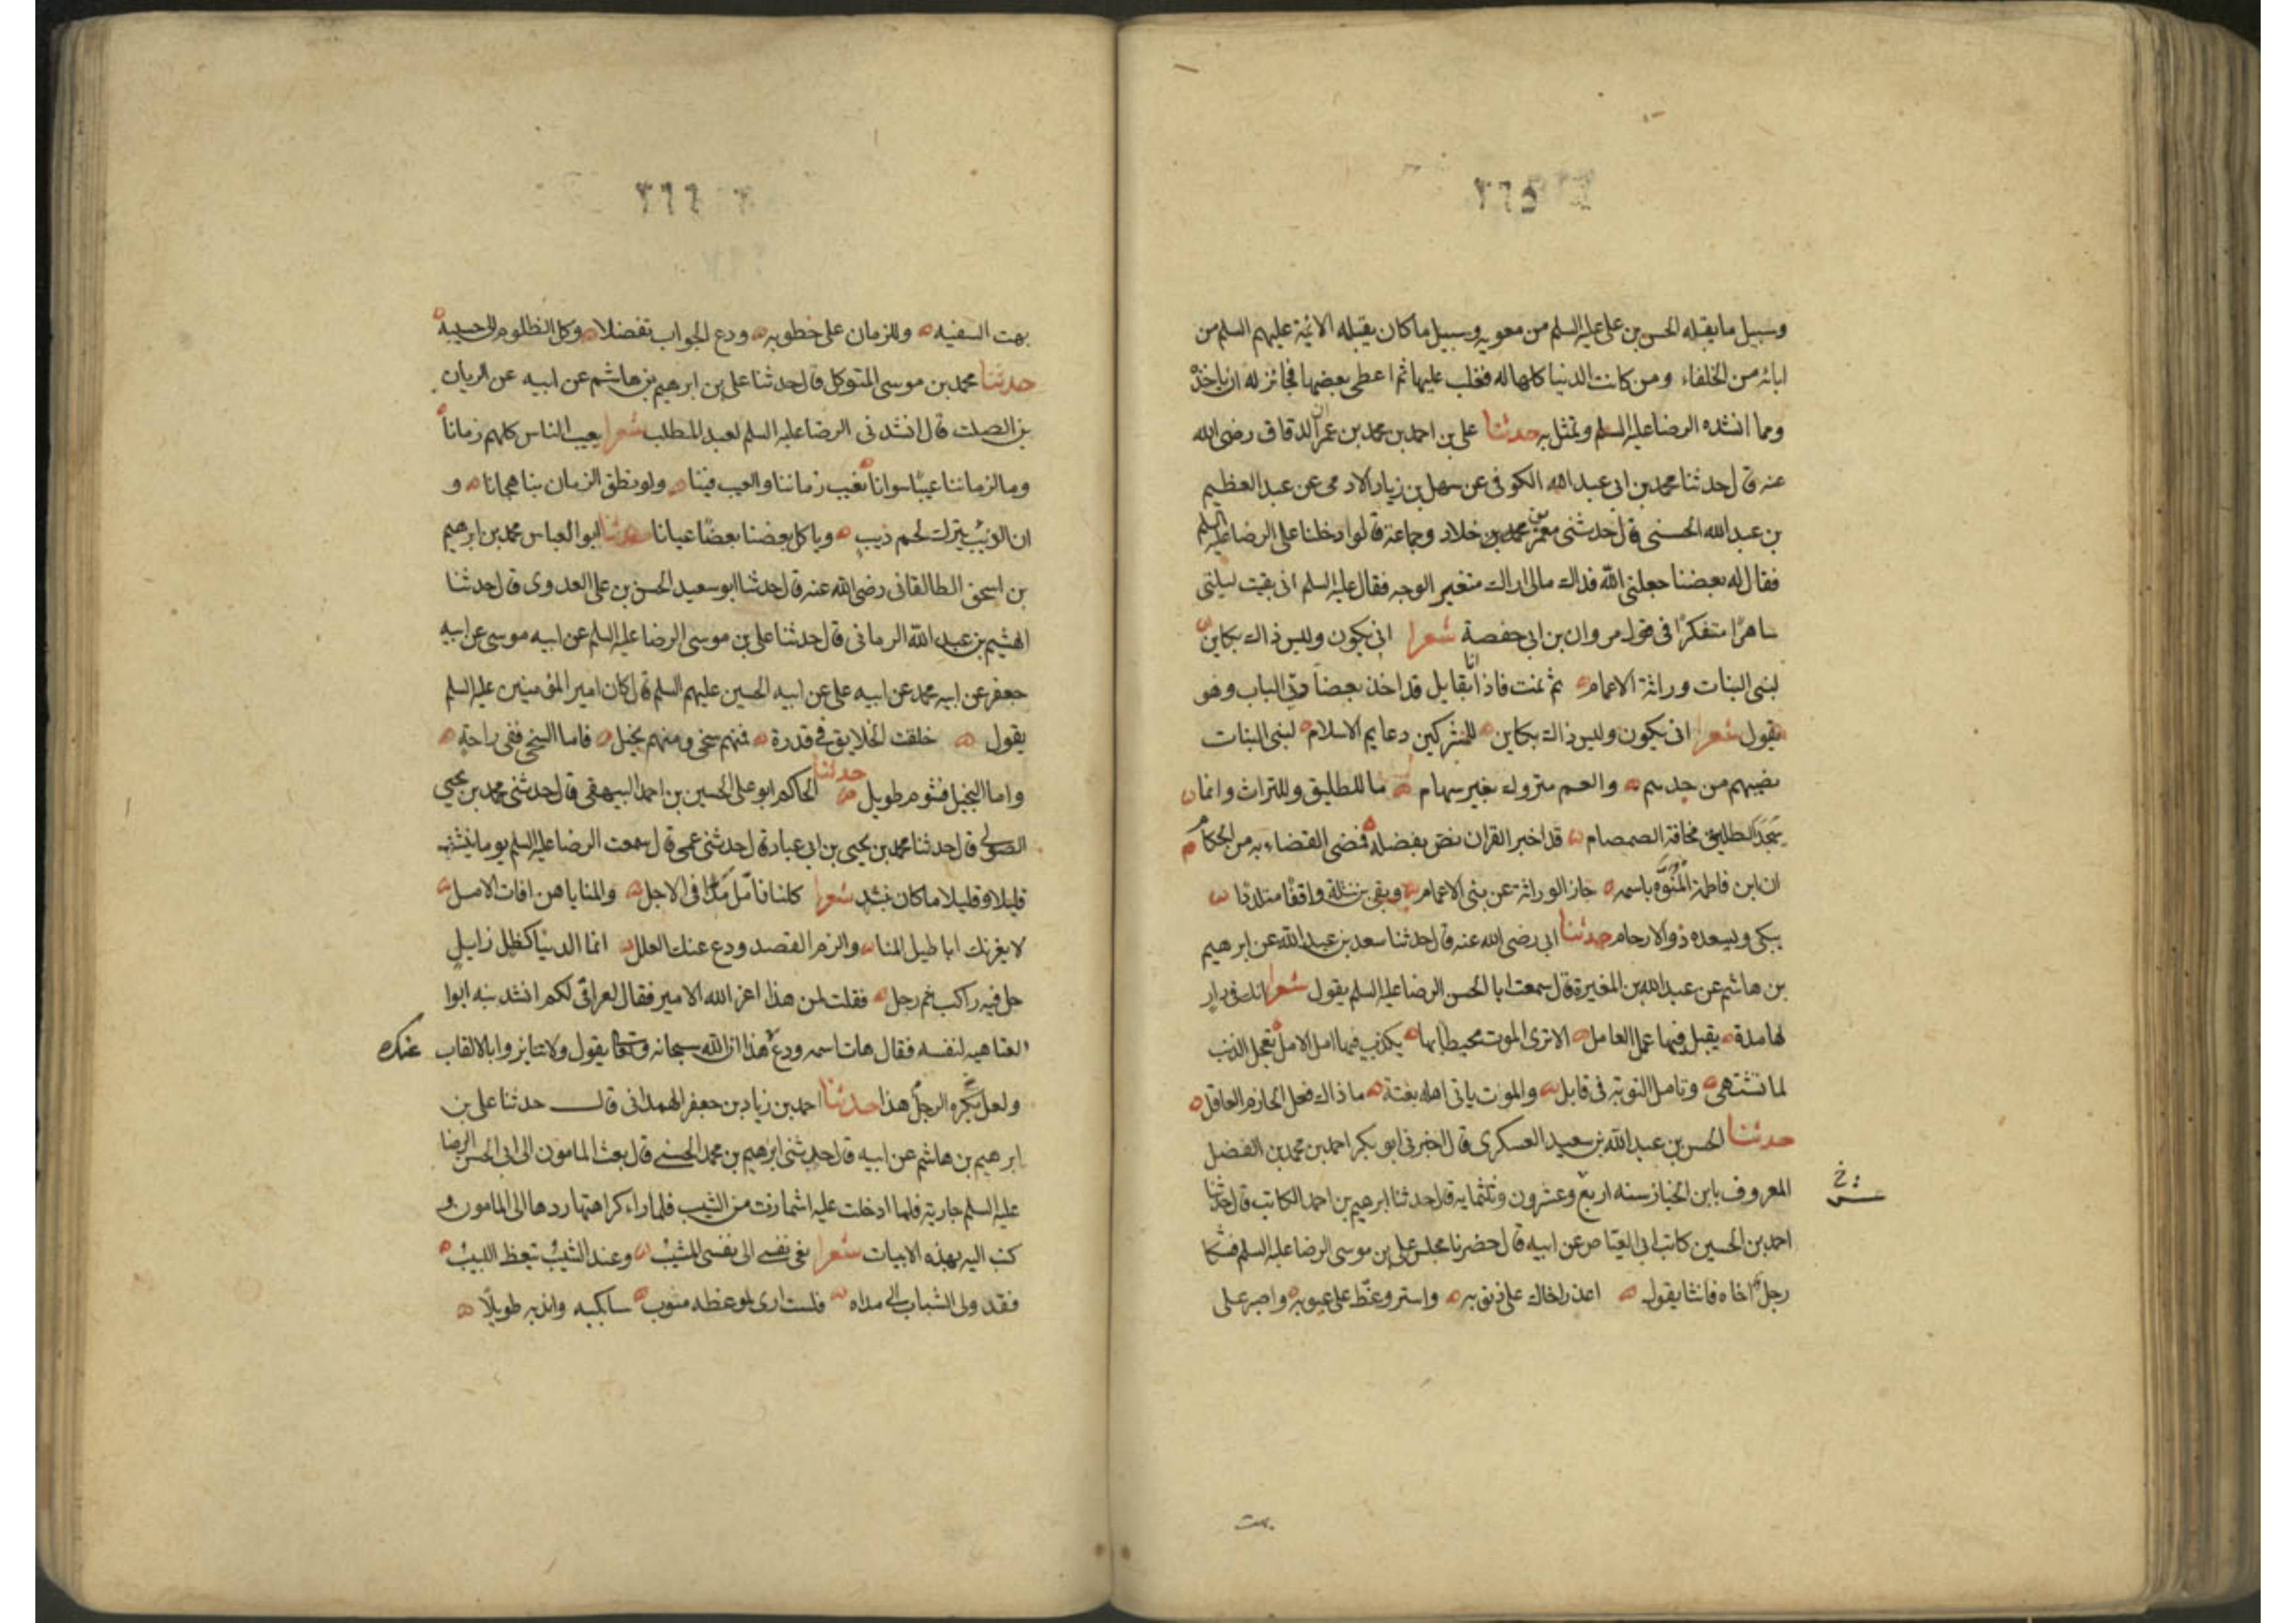 ٢٦٥
وسبيل ما يقبله الحسن بن على عليه السلم من معويه وسبيل ما كان يقبله الائمة عليهم السلم من
ابائه من الخلفاء ومن كانت الدنيا كلها له فغلب عليها ثم اعطى بعضها فجائز له ان ياخذ
ومما انشده الرضا عليه السلم وتمثل به حدثنا على بن احمد بن محمد بن عمران الدقاق رضى الله
عنه قال حدثنا محمد بن ابى عبد الله الكوفى عن سهل بن زياد الادمى عن عبد العظيم
بن عبد الله الحسنى قال حدثنى معمر بن خلاد وجماعة قالوا دخلنا على الرضا عليه السلم
فقال له بعضنا جعلنى الله فداك مالى اراك متغير الوجه فقال عليه السلم انى بقيت ليلتى
ساهرًا متفكرًا فى قول مروان بن ابى حفصة شعرا انى يكون وليس ذاك بكاين
لبنى البنات وراثة الاعمام ثم نمت فاذا انا بقايل قد اخذ بعضادتى الباب وهو
يقول شعرا انى يكون وليس ذاك بكاين للمشركين دعايم الاسلام لبنى البنات
نصيبهم من جدهم والعم متروك بغير سهام ما للطليق وللتراث وانما
سجد الطليق مخافة الصمصام قد اخبر القران نص بفضله فمضى القضاء به من الحكام
ان ابن فاطمة المنوه باسمه حاز الوراثة عن بنى الاعمام وبقى بن نثلة واقفًا مترددًا
يبكى ويسعده ذو الارحام حدثنا ابى رضى الله عنه قال حدثنا سعد بن عبد الله عن ابرهيم
بن هاشم عن عبد الله بن المغيرة قال سمعت ابا الحسن الرضا عليه السلم يقول شعرا انك فى دار
لها مدة يقبل فيها عمل العامل الا ترى الموت محيطا بها يكذب فيها امل الامل تعجل الذنب
لما تشتهى وتامل التوبة فى قابل والموت ياتى اهله بغتة ما ذاك فعل الحازم العاقل
حدثنا الحسن بن عبد الله بن سعيد العسكرى قال اخبرنى ابو بكر احمد بن محمد بن الفضل
المعروف بابن الخباز سنه اربع وعشرون وثلثمايه قال حدثنا ابرهيم بن احمد الكاتب قال حدثنا
احمد بن الحسين كاتب ابى الفياض عن ابيه قال حضرنا مجلس على بن موسى الرضا عليه السلم فشكا
رجل اخاه فانشا يقول اعذر اخاك على ذنوبه واستر وغط على عيوبه واصبر على
بهت
٢٦٦
بهت السفيه وللزمان على خطوبه ودع الجواب تفضلا وكل الظلوم الى حسيبه
حدثنا محمد بن موسى المتوكل قال حدثنا على بن ابرهيم بن هاشم عن ابيه عن الريان
بن الصلت قال انشدنى الرضا عليه السلم لعبد المطلب شعرا يعيب الناس كلهم زمانا
وما لزماننا عيبًا سوانا نعيب زماننا والعيب فينا ولو نطق الزمان بنا هجانا و
ان الذئب يترك لحم ذيب وياكل بعضنا بعضًا عيانا حدثنا ابو العباس محمد بن ابرهيم
بن اسحق الطالقانى رضى الله عنه قال حدثنا ابو سعيد الحسن بن على العدوى قال حدثنا
الهيثم بن عبد الله الرمانى قال حدثنا على بن موسى الرضا عليه السلم عن ابيه موسى عن ابيه
جعفر عن ابيه محمد عن ابيه على عن ابيه الحسين عليهم السلم قال كان امير المؤمنين عليه السلم
يقول خلقت الخلايق فى قدرة فمنهم سخى ومنهم بخيل فاما السخى ففى راحة
واما البخيل فشوم طويل حدثنا الحاكم ابو على الحسين بن احمد البيهقى قال حدثنى محمد بن يحيى
الصولى قال حدثنا محمد بن يحيى بن ابى عباد قال حدثنى عمى قال سمعت الرضا عليه السلم يوما ينشد
قليلا وقليلا ما كان ينشد شعرا كلنا نامل مدا فى الاجل والمنايا هن افات الامل
لا يغرنك اباطيل المنا والزم القصد ودع عنك العلل انما الدنيا كظل زايل
حل فيه راكب ثم رحل فقلت لمن هذا اعز الله الامير فقال لعراقى لكم انشدنيه ابوا
العتاهيه لنفسه فقال هات اسمه ودع هذا ان الله سبحانه وتعالى يقول ولا تنابزوا بالالقاب
ولعل يكره الرجل هذا حدثنا احمد بن زياد بن جعفر الهمدانى قال حدثنا على بن
ابرهيم بن هاشم عن ابيه قال حدثنى ابرهيم بن محمد الحسنى قال بعث المامون الى ابى الحسن الرضا
عليه السلم جارية فلما ادخلت عليه اشمازت من الشيب فلما راى كراهتها ردها الى المامون و
كتب اليه بهذه الابيات شعرا نعى نفسى الى نفسى المشيب وعند الشيب يتعظ اللبيب
فقد ولى الشباب الى مداه فلست ارى لموعظه منوب سابكيه واندبه طويلًا